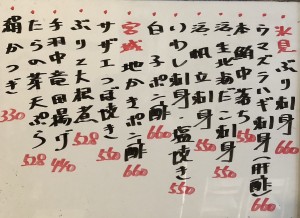 氷見ぶり刺身 660
ウマズラハギ刺身(肝酢) 660
本鮪中落ち 550
活北あだこ刺身 550
活帆立刺身 550
いわし刺身・塩焼き 550
白子ポン酢 660
宮城地かきポン酢 660
サザエつぼ焼き 550
ぶり大根煮 528
手羽中竜田揚げ 440
たらの芽天ぷら 528
絹かつぎ 330